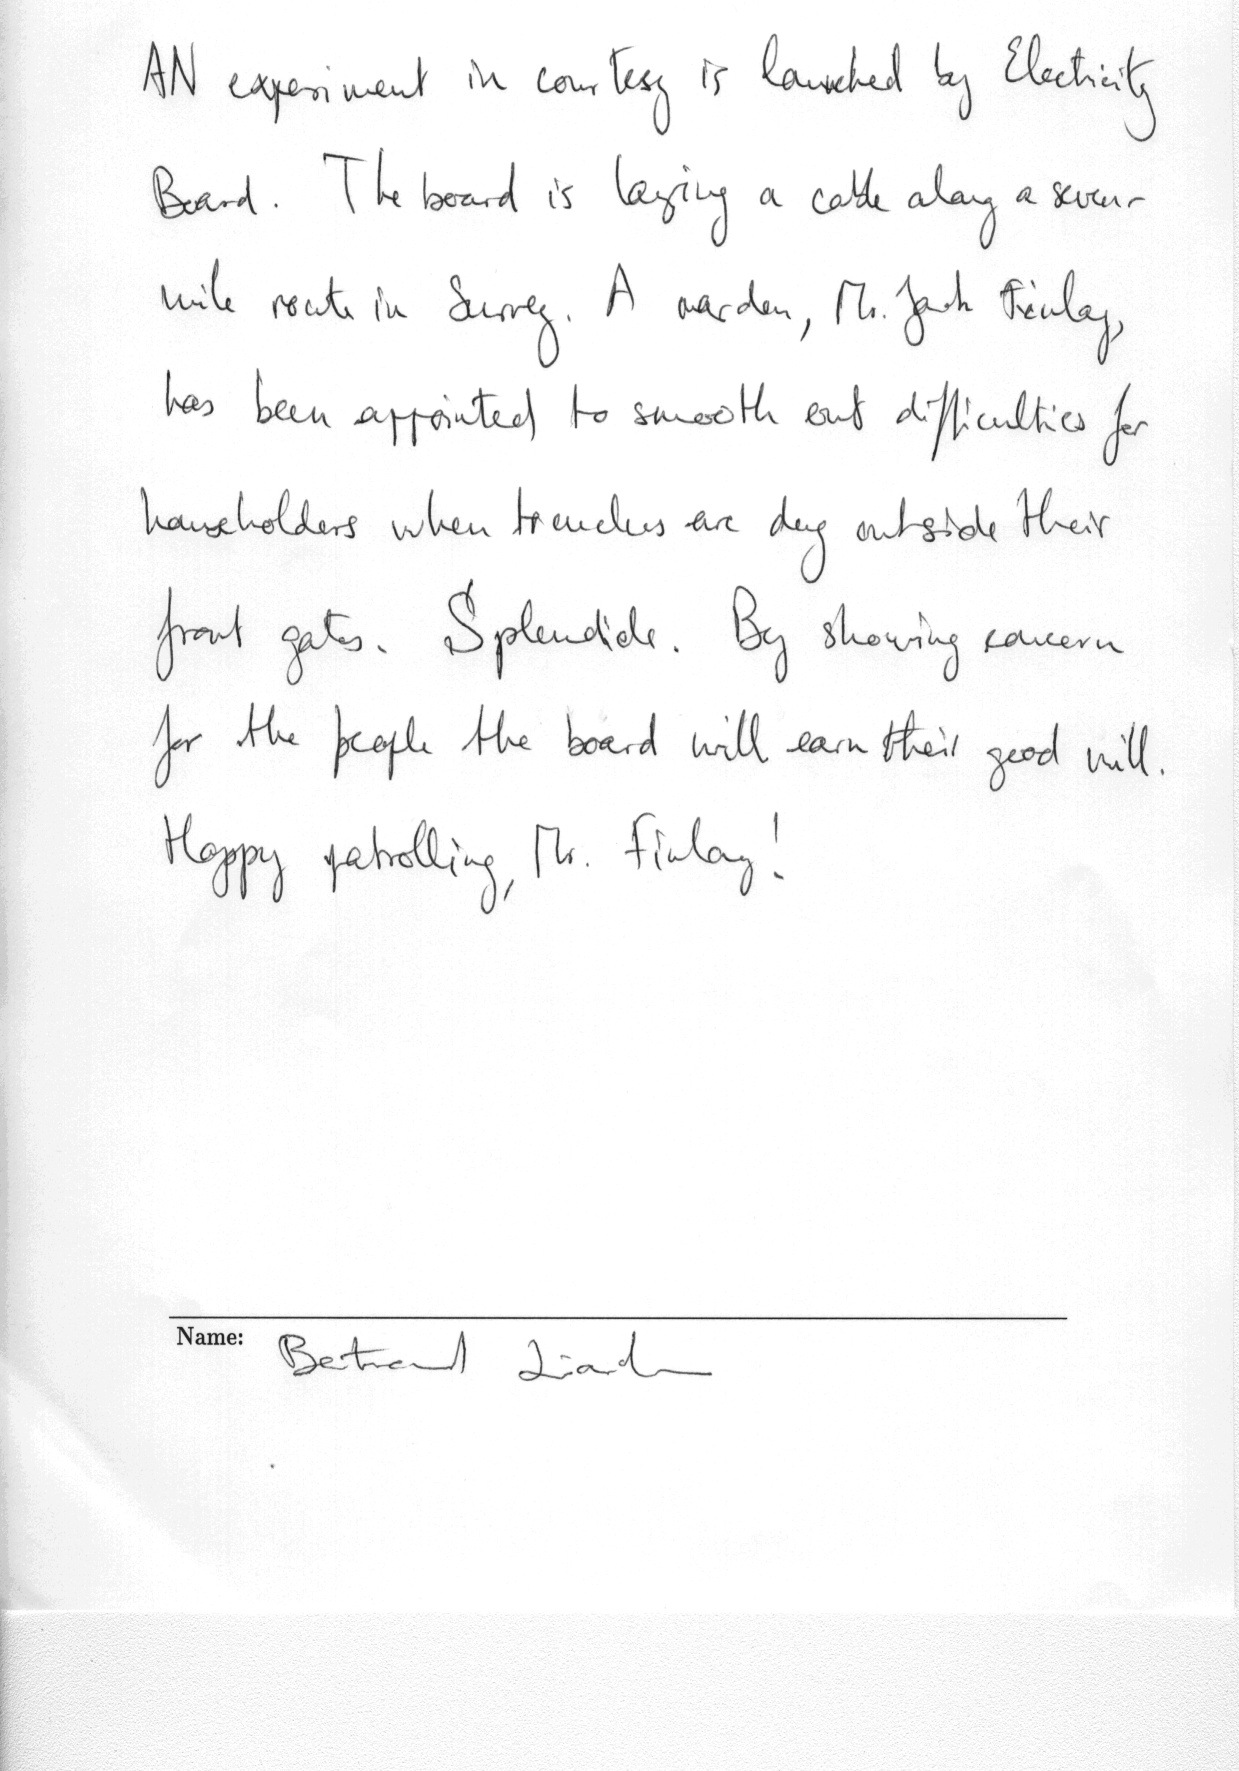 AN experiment in courtesy is launched by Electricity
Board. The board is laying a cable along a seven-
mile route in Surrey. A warden, Mr. Jack Finlay,
has been appointed to smooth out difficulties for
householders when trenches are dug outside their
front gates. Splendide. By showing concern
for the people the board will earn their good will.
Happy patrolling, Mr. Finlay!
Name: Bertrand